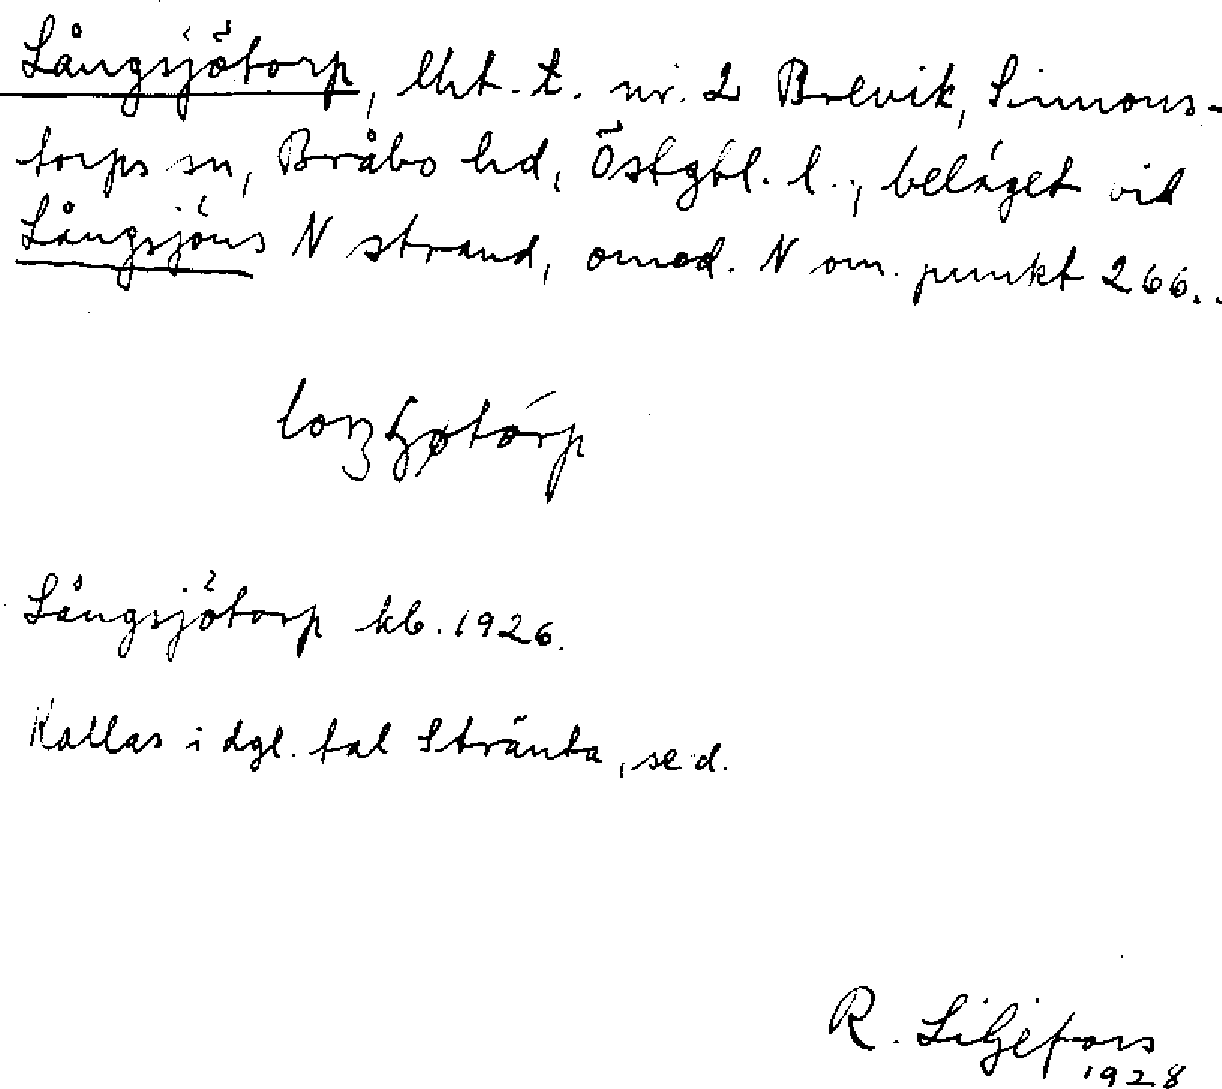 Långsjötorp, lht. t. nr. 2 Brevik, Simons-
torps sn, Bråbo hd, Östgtl. l., beläget vid
Långsjöns N strand, omed. N om. punkt 266..
Långsjötorp kb. 1926.
Kallas i dgl. tal Stränta, se d.
R. Liljefors
1928